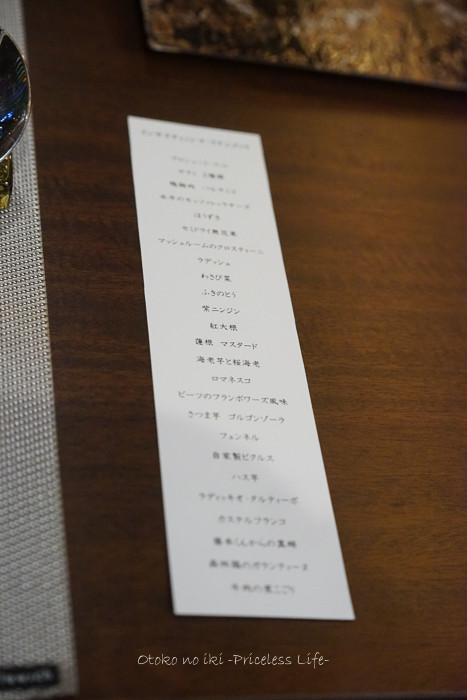 水牛のモッツァレッラチーズ
ほうずき
セミドライ無花果
マッシュルームのクロスティーニ
ラディッシュ
わさび菜
ふきのとう
紫ニンジン
紅大根
蓮根 マスタード
海老芋と桜海老
ロマネスコ
ビーツのフランボワーズ風味
さつま芋 ゴルゴンゾーラ
フェンネル
自家製ピクルス
ハス芋
ラディッキオ・タルティーボ
カステルフランコ
Otoko no iki -Priceless Life-